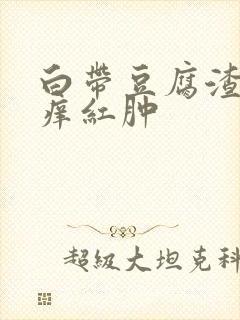 白带豆腐渣
痒红肿
超级大坦克科